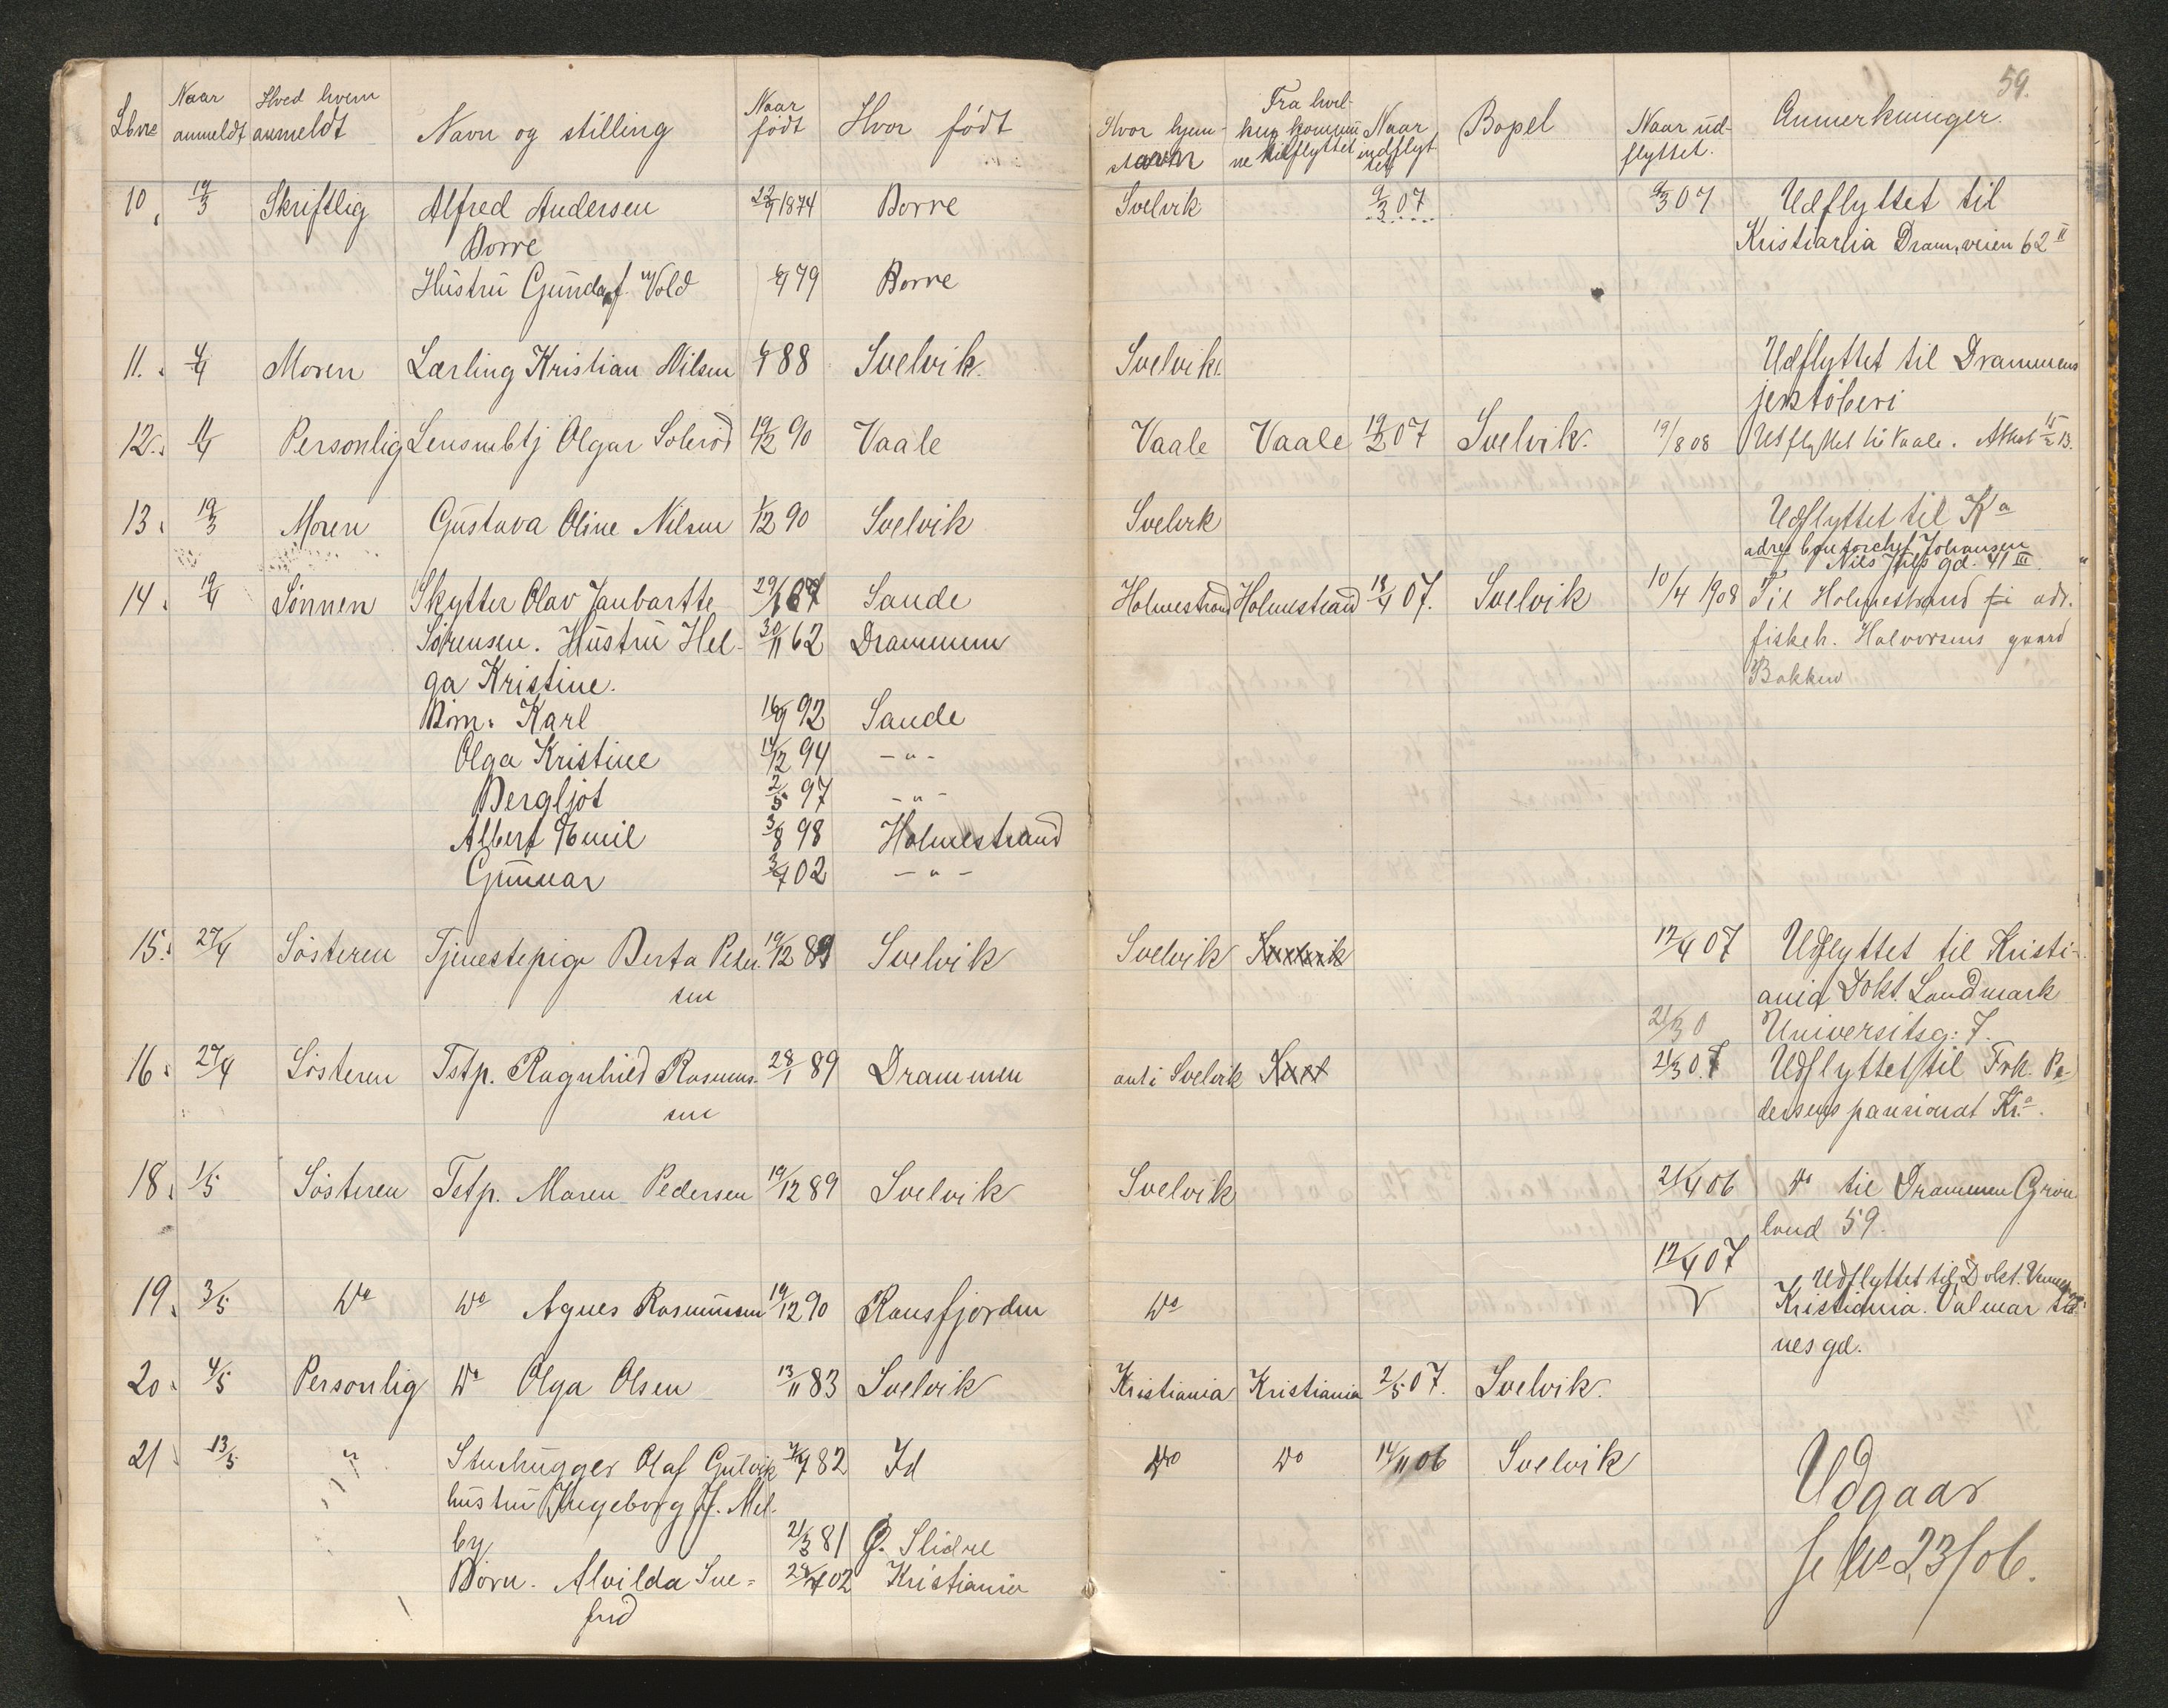 59.
Lbnr Naar anmeldt Hved hvem anmeldt Navn og stilling Naar født Hvor født Hvor hjem- Fra hvil- ken kommu ne tilflyttet Naar indflyt tet Bopel Naar ud- flyttet. Anmerkninger.
10. 19/3 Skriftlig Alfred Andersen 1874 Borre Svelvik 9/3 07 9/3 07 Udflyttet til
Borre Kristiania Dram.veien 62 II
Hustru Gunda f. Wold 79 Borre
11. 4/4 Moren Lærling Kristian Nilsen 88 Svelvik. Svelvik. Udflyttet til Drammens
12. Personlig Lensmbtj Olgar Solerød 19/12 90 Vaale Vaale Vaale 19/2 07 Svelvik. 19/8 08 Utflyttet til Vaale.
13. 19/3 Moren Gustava Oline Nilsen 1/12 90 Svelvik Svelvik Udflyttet til Ka
Johansen
Nils Juls gd. 41 III
14. 19/4 Sønnen Skytter Olav 29/1 67 Sande Holmestrand Holmestrand 18/4 07. Svelvik 10/4 1908 Til Holmestrand adr.
Sørensen. Hustru Hel- 30/11 62 Drammen fiskeh. Halvorsens gaard
ga Kristine. Bakken
Børn: Karl 16/9 92 Sande
Olga Kristine 14/12 94 - " -
Bergljot 2/5 97 - " -
Albert Emil 3/8 98 Holmestrand
Gunnar 3/7 02 - " -
15. 27/4 Søsteren Tjenestepige Berta Peder- 19/12 89 Svelvik Svelvik Svelvik 12/4 07 Udflyttet til Kristi-
sen ania Dokt. Landmark
21/3 0 Universitsg: 7.
16. 27/4 Søsteren Tstp. Ragnhild Rasmus- 28/1 89 Drammen ant: Svelvik 21/3 07 Udflyttet til Frk. Pe-
sen dersens pansionat Kr.a.
18. 1/5 Søsteren Tstp. Maren Pedersen 19/12 89 Svelvik Svelvik 21/4 06 Do til Drammen Grøn
land 59.
12/4 07 Udflyttet til Dokt.
19. 3/5 Do Do Agnes Rasmussen 19/12 90 Ransfjorden Do Kristiania.
nes gd.
20. 4/5 Personlig Do Olga Olsen 13/11 83 Svelvik Kristiania Kristiania 2/5 07. Svelvik.
21 13/5 " Stenhugger Olaf Gulvik 82 Id Do Do 14/11 06 Svelvik Udgaar
hustru Ingeborg J. Mel- se No 23/06.
by 21/3 81 Ø. Slidre
Børn. Alvilda Sve= 02 Kristiania
frid